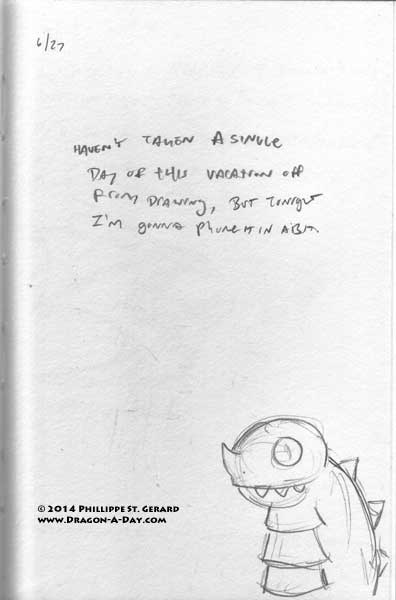 6/27
HAVEN'T TAKEN A SINGLE
DAY OF THIS VACATION OFF
FROM DRAWING, BUT TONIGHT
I'M GONNA PHONE IT IN A BIT.
© 2014 PHILLIPPE ST. GERARD
WWW.DRAGON-A-DAY.COM